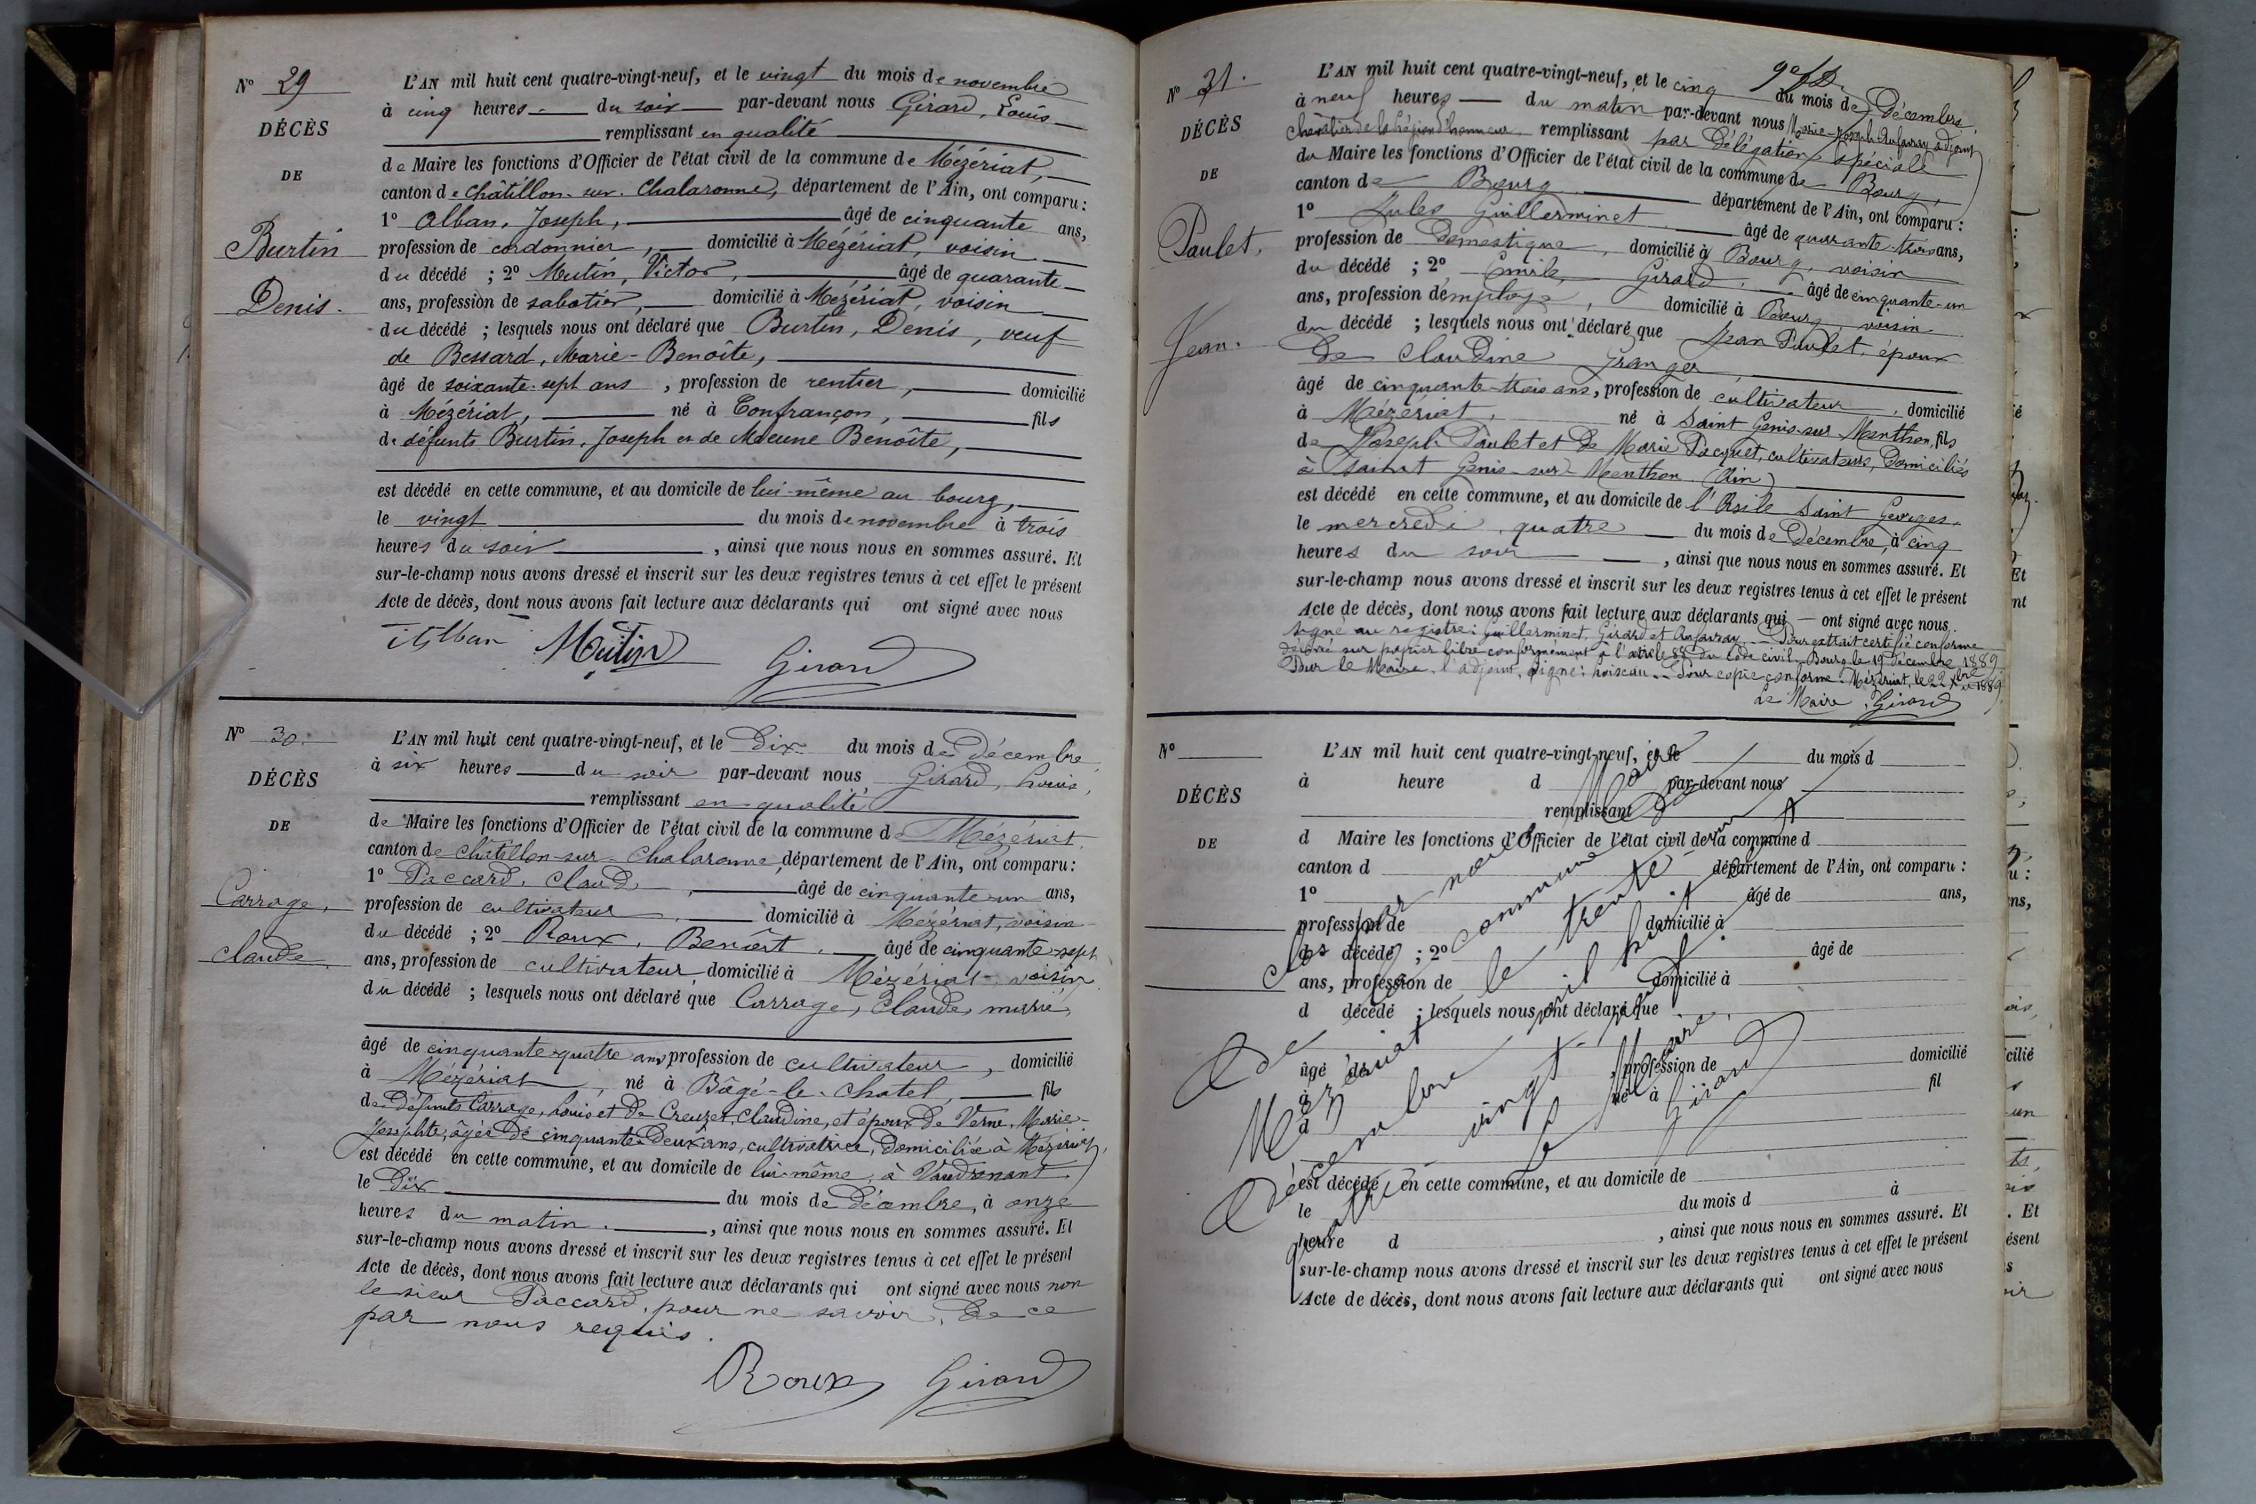 N° 29
DÉCÈS
DE
Burtin
Denis.
L'AN mil huit cent quatre-vingt-neuf, et le vingt du mois de novembre
à cinq heures du soir par-devant nous Girard, Louis
remplissant en qualité
de Maire les fonctions d'Officier de l'état civil de la commune de Mézériat,
canton de Châtillon-sur-Chalaronne, département de l'Ain, ont comparu :
1° Alban, Joseph, âgé de cinquante ans,
profession de cordonnier, domicilié à Mézériat, voisin
du décédé ; 2° Mutin, Victor, âgé de quarante
ans, profession de sabotier, domicilié à Mézériat, voisin
du décédé ; lesquels nous ont déclaré que Burtin, Denis, veuf
de Bessard, Marie-Benoîte,
âgé de soixante-sept ans, profession de rentier, domicilié
à Mézériat, né à Confrançon, fils
de défunts Burtin, Joseph et de Benoîte,
est décédé en cette commune, et au domicile de lui-même au bourg,
le vingt du mois de novembre à trois
heures du soir, ainsi que nous nous en sommes assuré. Et
sur-le-champ nous avons dressé et inscrit sur les deux registres tenus à cet effet le présent
Acte de décès, dont nous avons fait lecture aux déclarants qui ont signé avec nous
Alban Mutin Girard
N° 30.
DÉCÈS
DE
Carrage,
Claude.
L'AN mil huit cent quatre-vingt-neuf, et le Dix du mois de Décembre
à six heures du soir par-devant nous Girard, Louis,
remplissant en qualité
de Maire les fonctions d'Officier de l'état civil de la commune de Mézériat
canton de Châtillon-sur-Chalaronne, département de l'Ain, ont comparu :
1° Paccard, Claude, âgé de cinquante-un ans,
profession de cultivateur, domicilié à Mézériat, voisin
du décédé ; 2° Roux, Benoît, âgé de cinquante-sept
ans, profession de cultivateur domicilié à Mézériat voisin
du décédé ; lesquels nous ont déclaré que Carrage, Claude, marié,
âgé de cinquante-quatre ans, profession de cultivateur, domicilié
à Mézériat, né à Bâgé-le-Chatel, fils
de Défunts Carrage, Louis et de Creuzet, Claudine, et époux de Verne, Marie-
Josephte, âgée de cinquante-deux ans, cultivatrice, domiciliée à Mézériat,
est décédé en cette commune, et au domicile de lui-même, à Vaudrenant
le Dix du mois de Décembre, à onze
heures du matin, ainsi que nous nous en sommes assuré. Et
sur-le-champ nous avons dressé et inscrit sur les deux registres tenus à cet effet le présent
Acte de décès, dont nous avons fait lecture aux déclarants qui ont signé avec nous non
le sieur Paccard, pour ne savoir, de ce
par nous requis.
Roux Girard
N° 31.
DÉCÈS
DE
Paulet,
Jean.
L'AN mil huit cent quatre-vingt-neuf, et le cinq du mois de Décembre
à neuf heures du matin par-devant nous Marie-Joseph adjoint
Chevalier de la Légion d'honneur remplissant par Délégation spéciale
du Maire les fonctions d'Officier de l'état civil de la commune de Bourg,
canton de Bourg département de l'Ain, ont comparu :
1° Jules Guillerminet âgé de quarante-trois ans,
profession de Domestique, domicilié à Bourg, voisin
du décédé ; 2° Emile Girard, âgé de cinquante-un
ans, profession d'employé, domicilié à Bourg, voisin
du décédé ; lesquels nous ont déclaré que Jean Paulet, époux
De Claudine Granger
âgé de cinquante-trois ans, profession de cultivateur, domicilié
à Mézériat, né à Saint Genis-sur Menthon, fils
de Joseph Paulet et de Marie Pacquet, cultivateurs, Domiciliés
à Saint Genis-sur-Menthon (Ain)
est décédé en cette commune, et au domicile de l'Asile Saint Georges
le mercredi quatre du mois de Décembre, à cinq
heures du soir, ainsi que nous nous en sommes assuré. Et
sur-le-champ nous avons dressé et inscrit sur les deux registres tenus à cet effet le présent
Acte de décès, dont nous avons fait lecture aux déclarants qui ont signé avec nous.
Signé au registre : Guillerminet, Girard et Pour extrait certifié conforme
délivré sur papier libre conformément à l'article 88 du Code civil. Bourg, le 19 Décembre 1889.
Pour le Maire, l'adjoint, signé : Pour copie conforme. Mézériat, le 22 Xbre 1889.
Le Maire, Girard
N°
DÉCÈS
DE
L'AN mil huit cent quatre-vingt-neuf, et le du mois d
à heure d par-devant nous
remplissant
d Maire les fonctions d'Officier de l'état civil de la commune d
canton d département de l'Ain, ont comparu :
1° âgé de ans,
profession de domicilié à
d décédé ; 2° âgé de
ans, profession de domicilié à
d décédé ; lesquels nous ont déclaré que
âgé de , profession de domicilié
à né à fil
d
est décédé en cette commune, et au domicile de
le du mois d à
heure d , ainsi que nous nous en sommes assuré. Et
sur-le-champ nous avons dressé et inscrit sur les deux registres tenus à cet effet le présent
Acte de décès, dont nous avons fait lecture aux déclarants qui ont signé avec nous
Clos par nous Maire
De la commune de
Mézériat le trente-un
Décembre mil huit cent
quatre-vingt-neuf.
Le Maire,
Girard